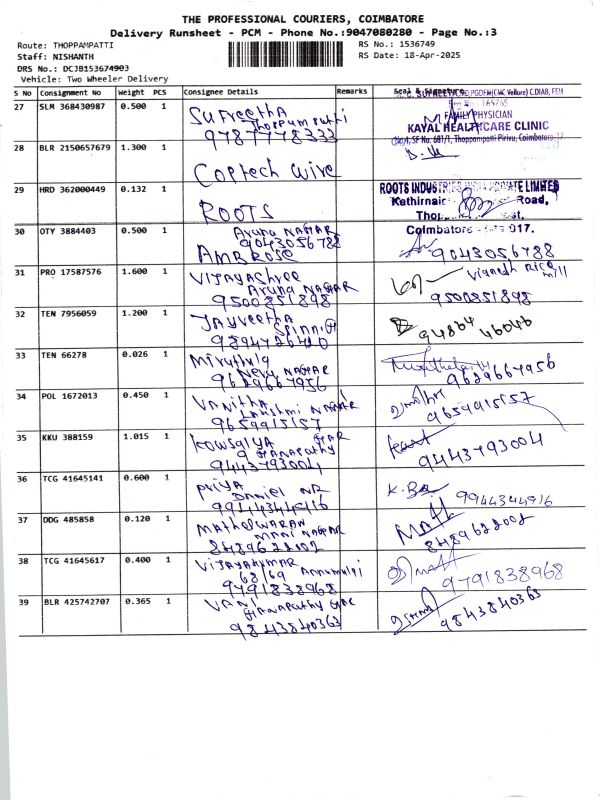 THE PROFESSIONAL COURIERS, COIMBATORE
Delivery Runsheet - PCM - Phone No.:9047080280 - Page No.:3
Route: THOPPAMPATTI
RS No.: 1536749
Staff: NISHANTH
RS Date: 18-Apr-2025
DRS No.: DCJB153674903
Vehicle: Two Wheeler Delivery
S No Consignment No Weight PCS Consignee Details Remarks Seal & Signature
27 SLM 368430987 0.500 1 Sufreetha
Thoppampatti
9787778333
FAMILY PHYSICIAN
KAYAL HEALTHCARE CLINIC
28 BLR 2150657679 1.300 1
Coptech wire
29 HRD 362000449 0.132 1
ROOTS
ROOTS INDUSTRIES INDIA PRIVATE LIMITED
Road,
Coimbatore - 017.
30 OTY 3884403 0.500 1 Aruna NAGAR
9043056788
AMBROSE
9043056788
31 PRO 17587576 1.600 1 VIJAYAShree
Aruna NAGAR
9500851898
Vignesh Rice
mill
9500851898
32 TEN 7956059 1.200 1 JAYveetha
Spinni
94864 46046
33 TEN 66278 0.026 1 Miruthula
Neru NAGAR
9629667956
9629667956
34 POL 1672013 0.450 1 VANitha
Lakshmi NAGAR
9659915157
9659915157
35 KKU 388159 1.015 1 KowsalYA
GANAPATHY
9443793004
9443793004
36 TCG 41645141 0.600 1 PriyA
DANiel NR
9944344916
K.Ba
9944344916
37 DDG 485858 0.120 1 MAthesWARAN
MANi NAGAR
8489622002
8489622002
38 TCG 41645617 0.400 1 VIJAYAKUMAR
68/69 Annumalai
9791838968
9791838968
39 BLR 425742707 0.365 1 VANI
9843840363
9843840363